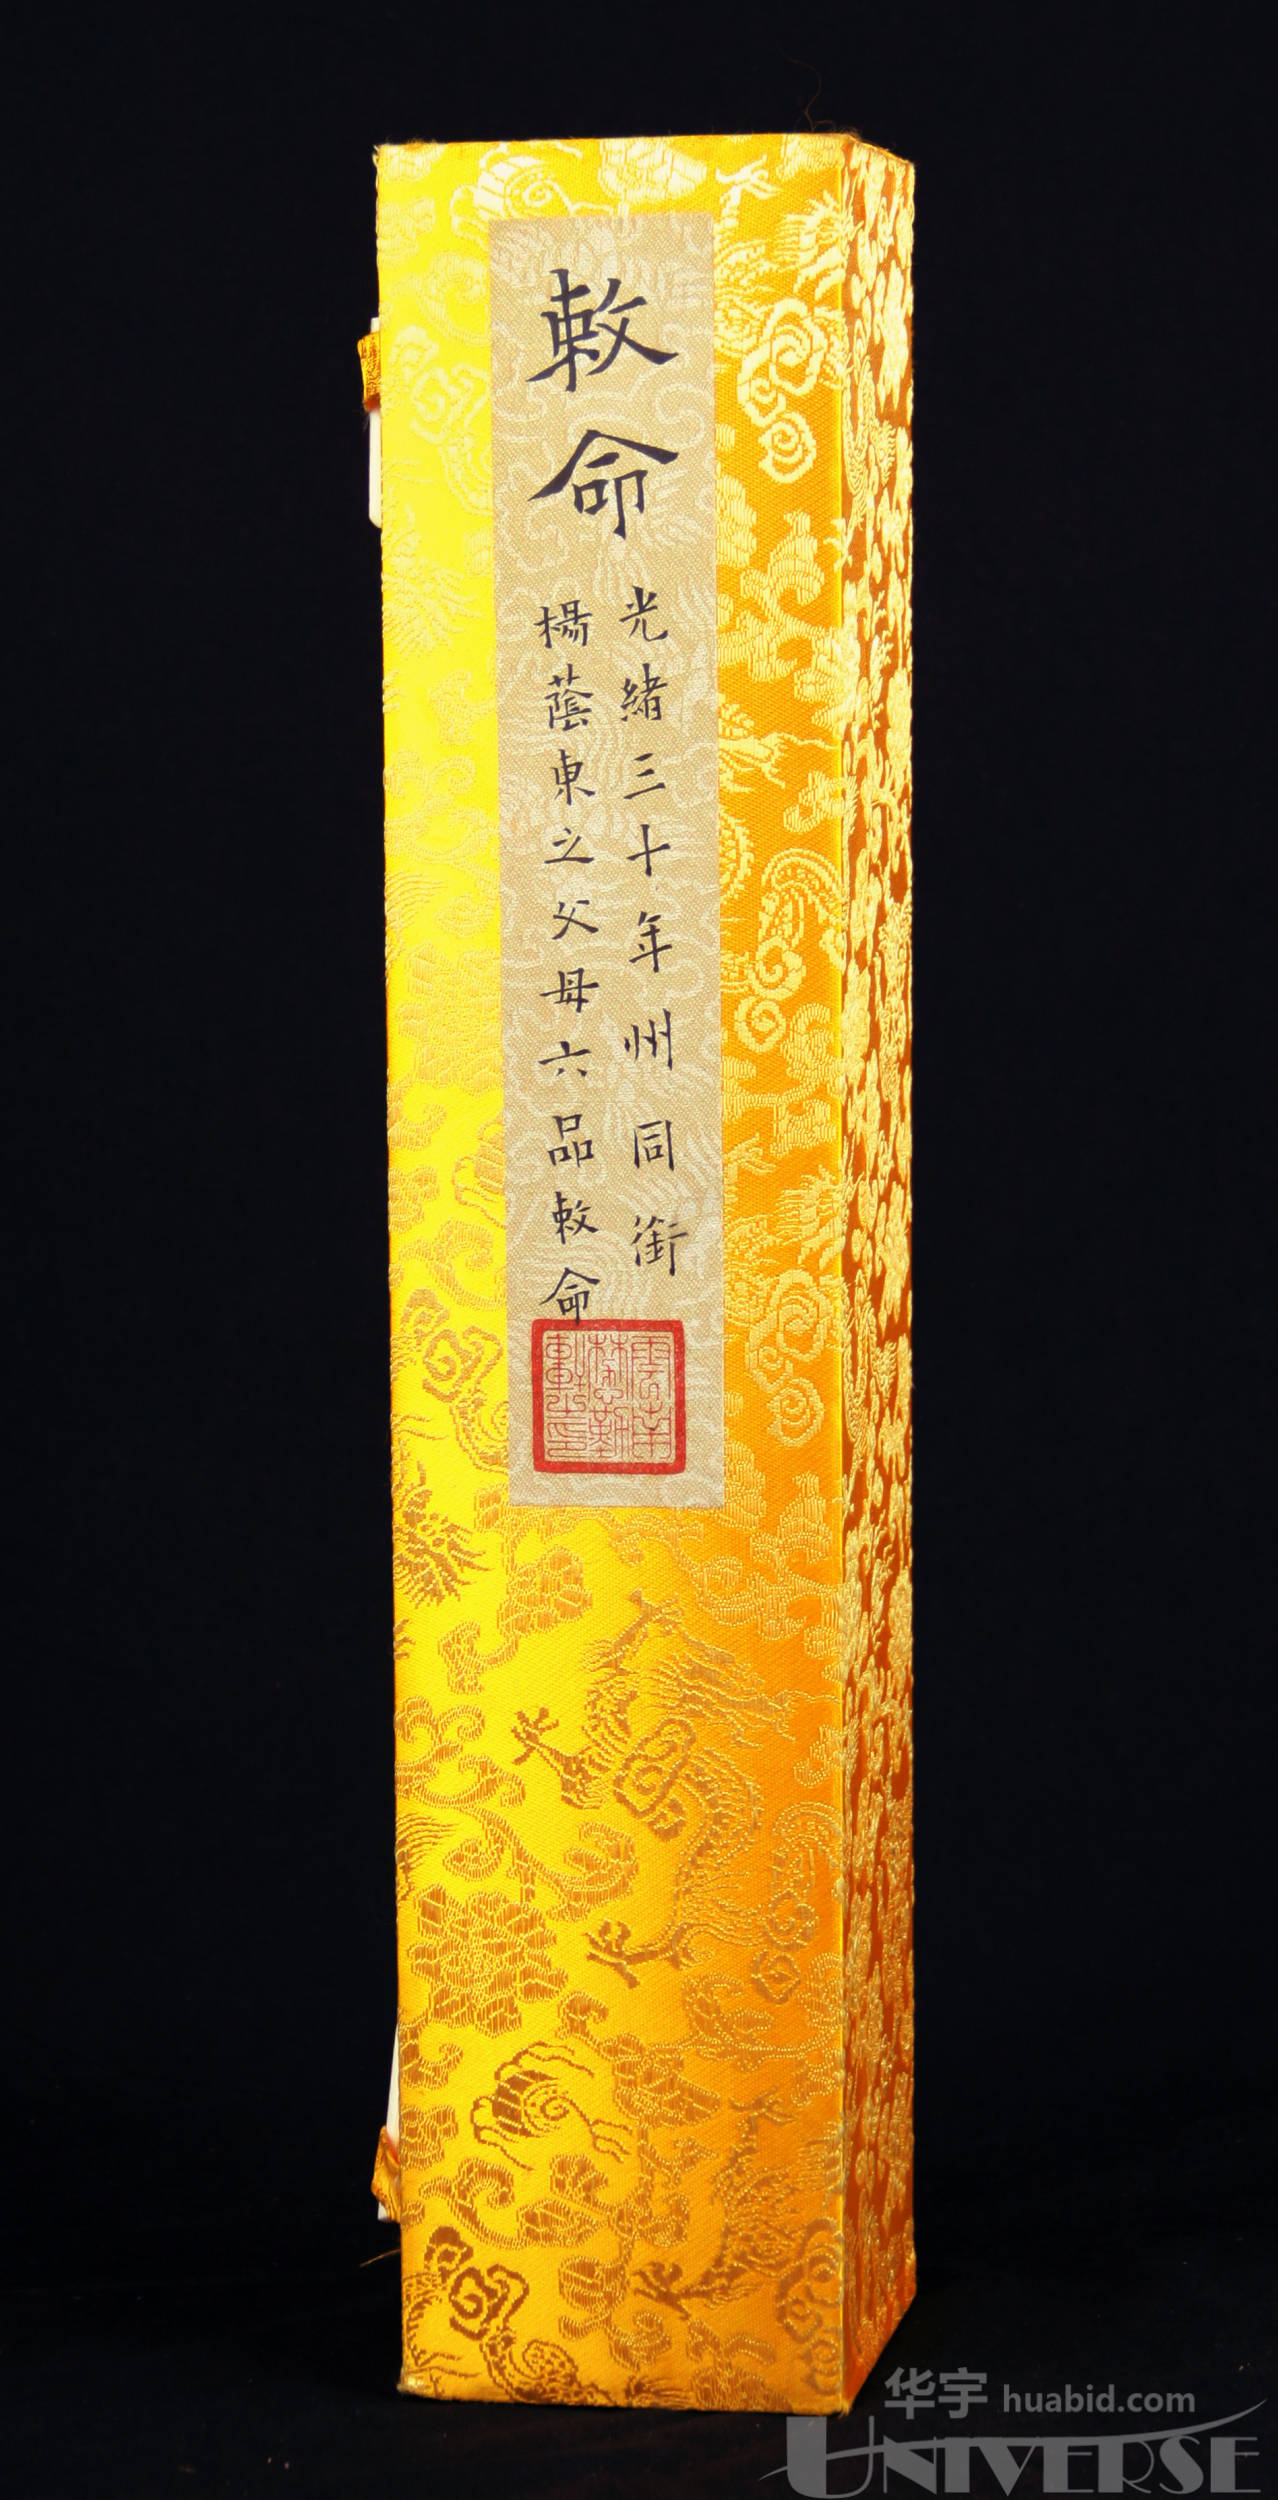 敕命
光緒三十年州同銜
楊蔭東之父母六品敕命
雲南
懋勤
华宇 huabid.com
UNIVERSE